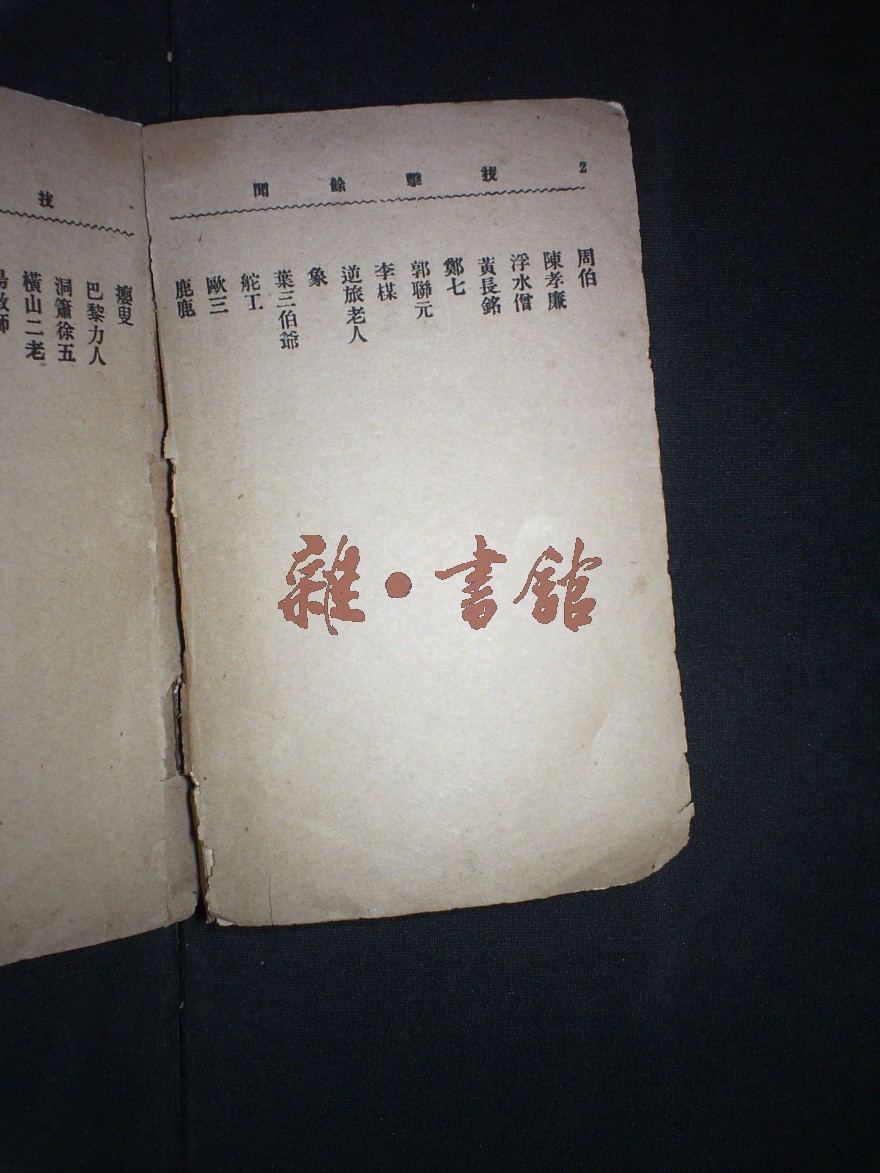 2
技擊餘聞
周伯
陳孝廉
浮水僧
黃長銘
鄭七
郭聯元
李楳
逆旅老人
象
葉三伯爺
舵工
歐三
技
巴黎力人
洞簫徐五
橫山二老
雜·書館